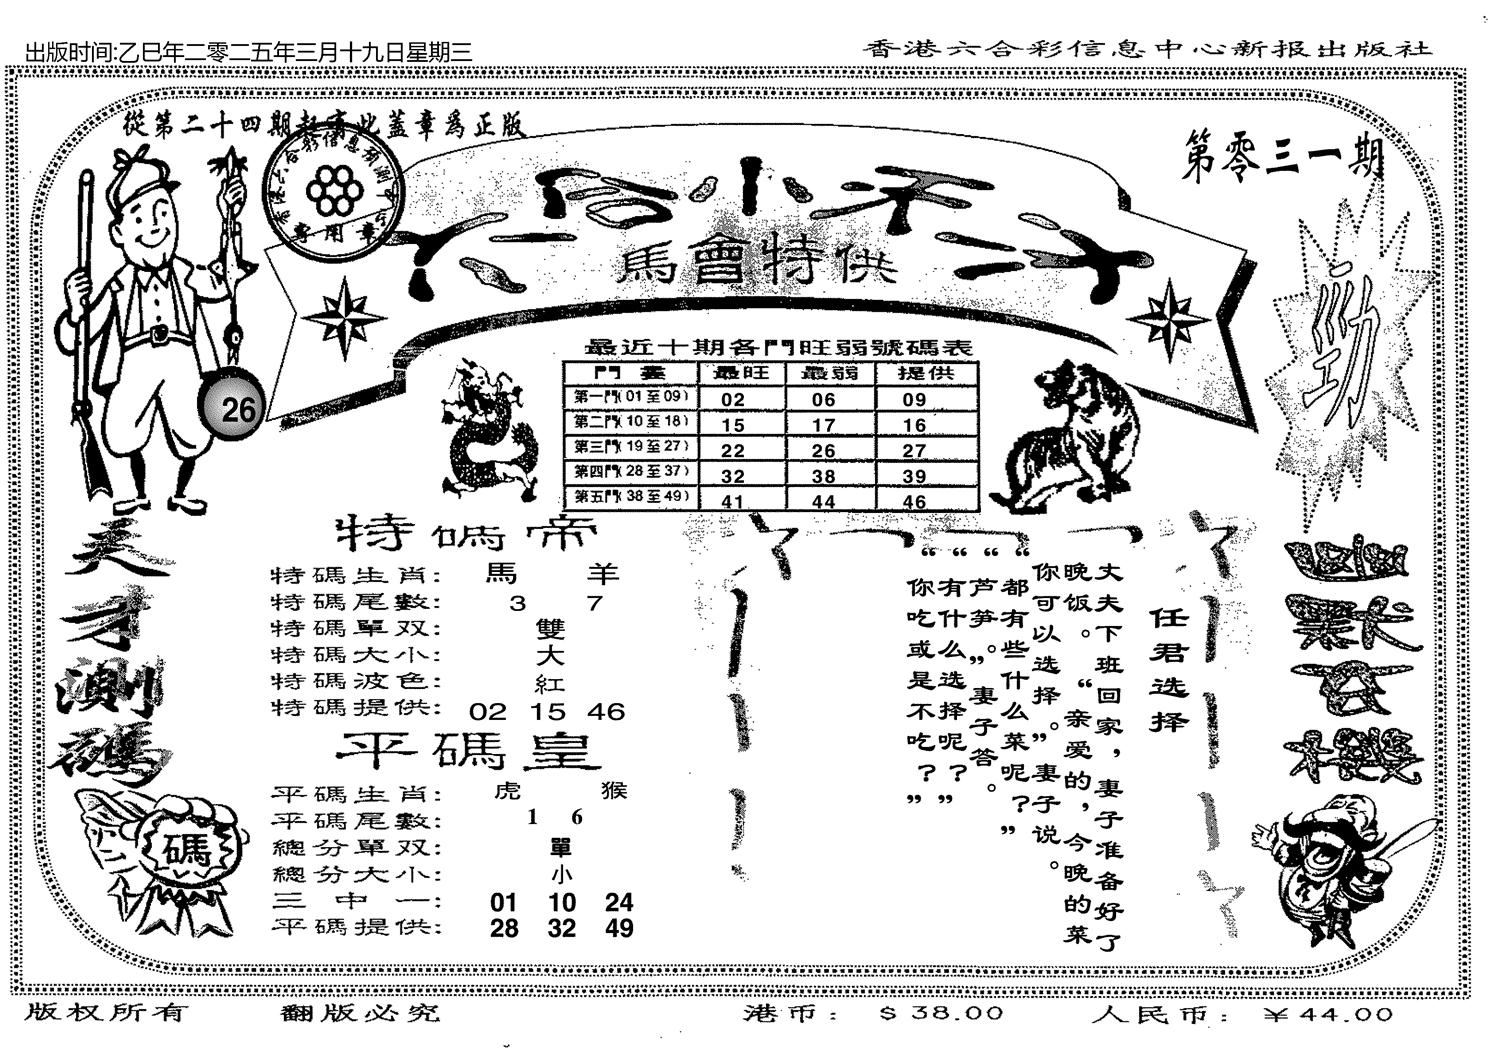 出版时间:乙巳年二零二五年三月十九日星期三
香港六合彩信息中心新报出版社
從第二十四期起有此蓋章爲正版
第零三一期
專用章
馬會特供
勁
26
最近十期各門旺弱號碼表
門 畫 最旺 最弱 提供
第一門(01至09) 02 06 09
第二門(10至18) 15 17 16
第三門(19至27) 22 26 27
第四門(28至37) 32 38 39
第五門(38至49) 41 44 46
天才測碼
碼
特碼帝
特碼生肖: 馬 羊
特碼尾數: 3 7
特碼單双: 雙
特碼大小: 大
特碼波色: 紅
特碼提供: 02 15 46
平碼皇
平碼生肖: 虎 猴
平碼尾數: 1 6
總分單双: 單
總分大小: 小
三中一: 01 10 24
平碼提供: 28 32 49
任君选择
丈夫下班回家，妻子准备好了
晚饭。“亲爱的，今晚的菜
你可以选择。”妻子说。
“都有些什么菜呢？”
“芦笋”。妻子答。
“有什么选择呢？”
“你吃或是不吃？”
版权所有
翻版必究
港币: $38.00
人民币: ¥44.00